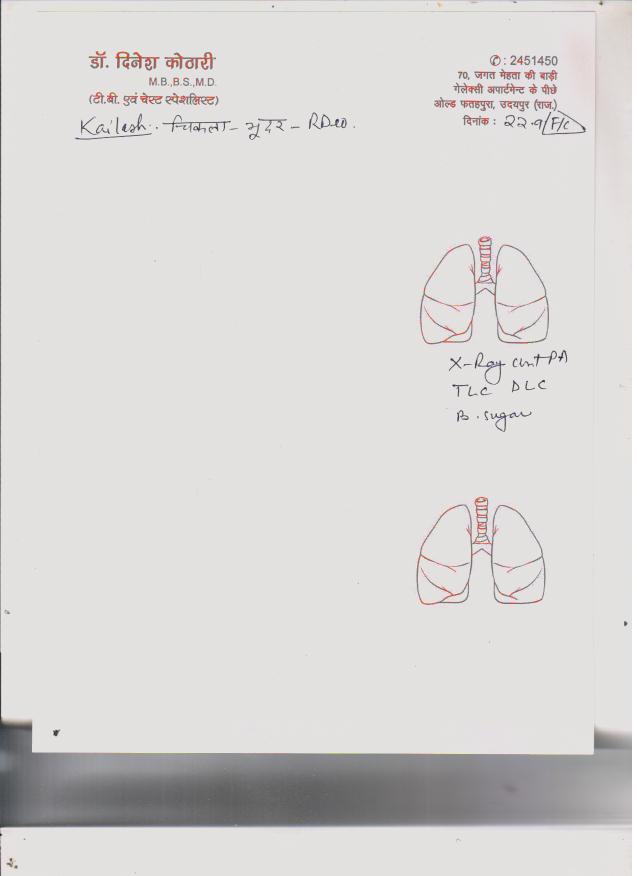 डॉ. दिनेश कोठारी
M.B.,B.S.,M.D.
(टी.बी. एवं चेस्ट स्पेशलिस्ट)
✆ : 2451450
70, जगत मेहता की बाड़ी
गेलेक्सी अपार्टमेन्ट के पीछे
ओल्ड फतहपुरा, उदयपुर (राज.)
दिनांक : 22.9/F/C
Kailash
X-Ray PA
TLC DLC
B. sugar